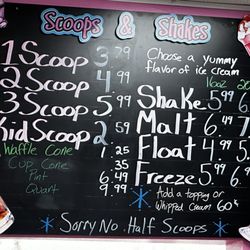 Scoops & Shakes
1 Scoop 3.79
2 Scoop 4.99
3 Scoop 5.99
Kid Scoop 2.59
Waffle Cone 1.25
Cup Cone .35
Pint 6.49
Quart 9.99
Choose a yummy
flavor of ice cream
16oz
Shake 5.99
Malt 6.49
Float 4.99
Freeze 5.99
* Add a topping or
Whipped Cream 60¢
* Sorry No Half Scoops *